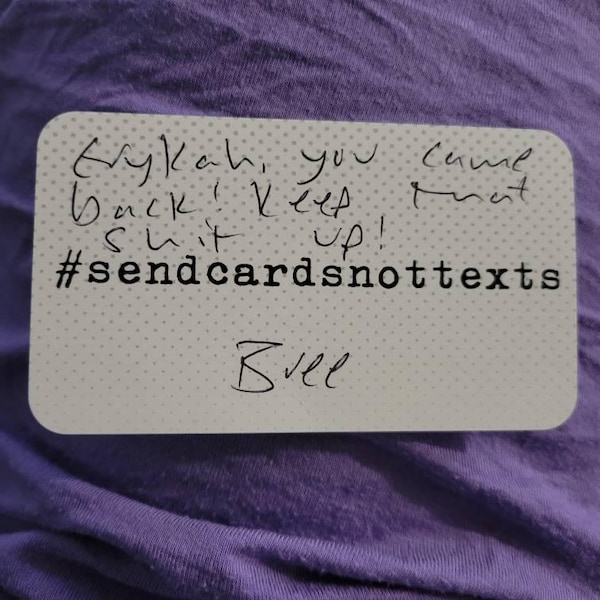 Erykah, you came
back! Keep that
shit up!
#sendcardsnottexts
Bree